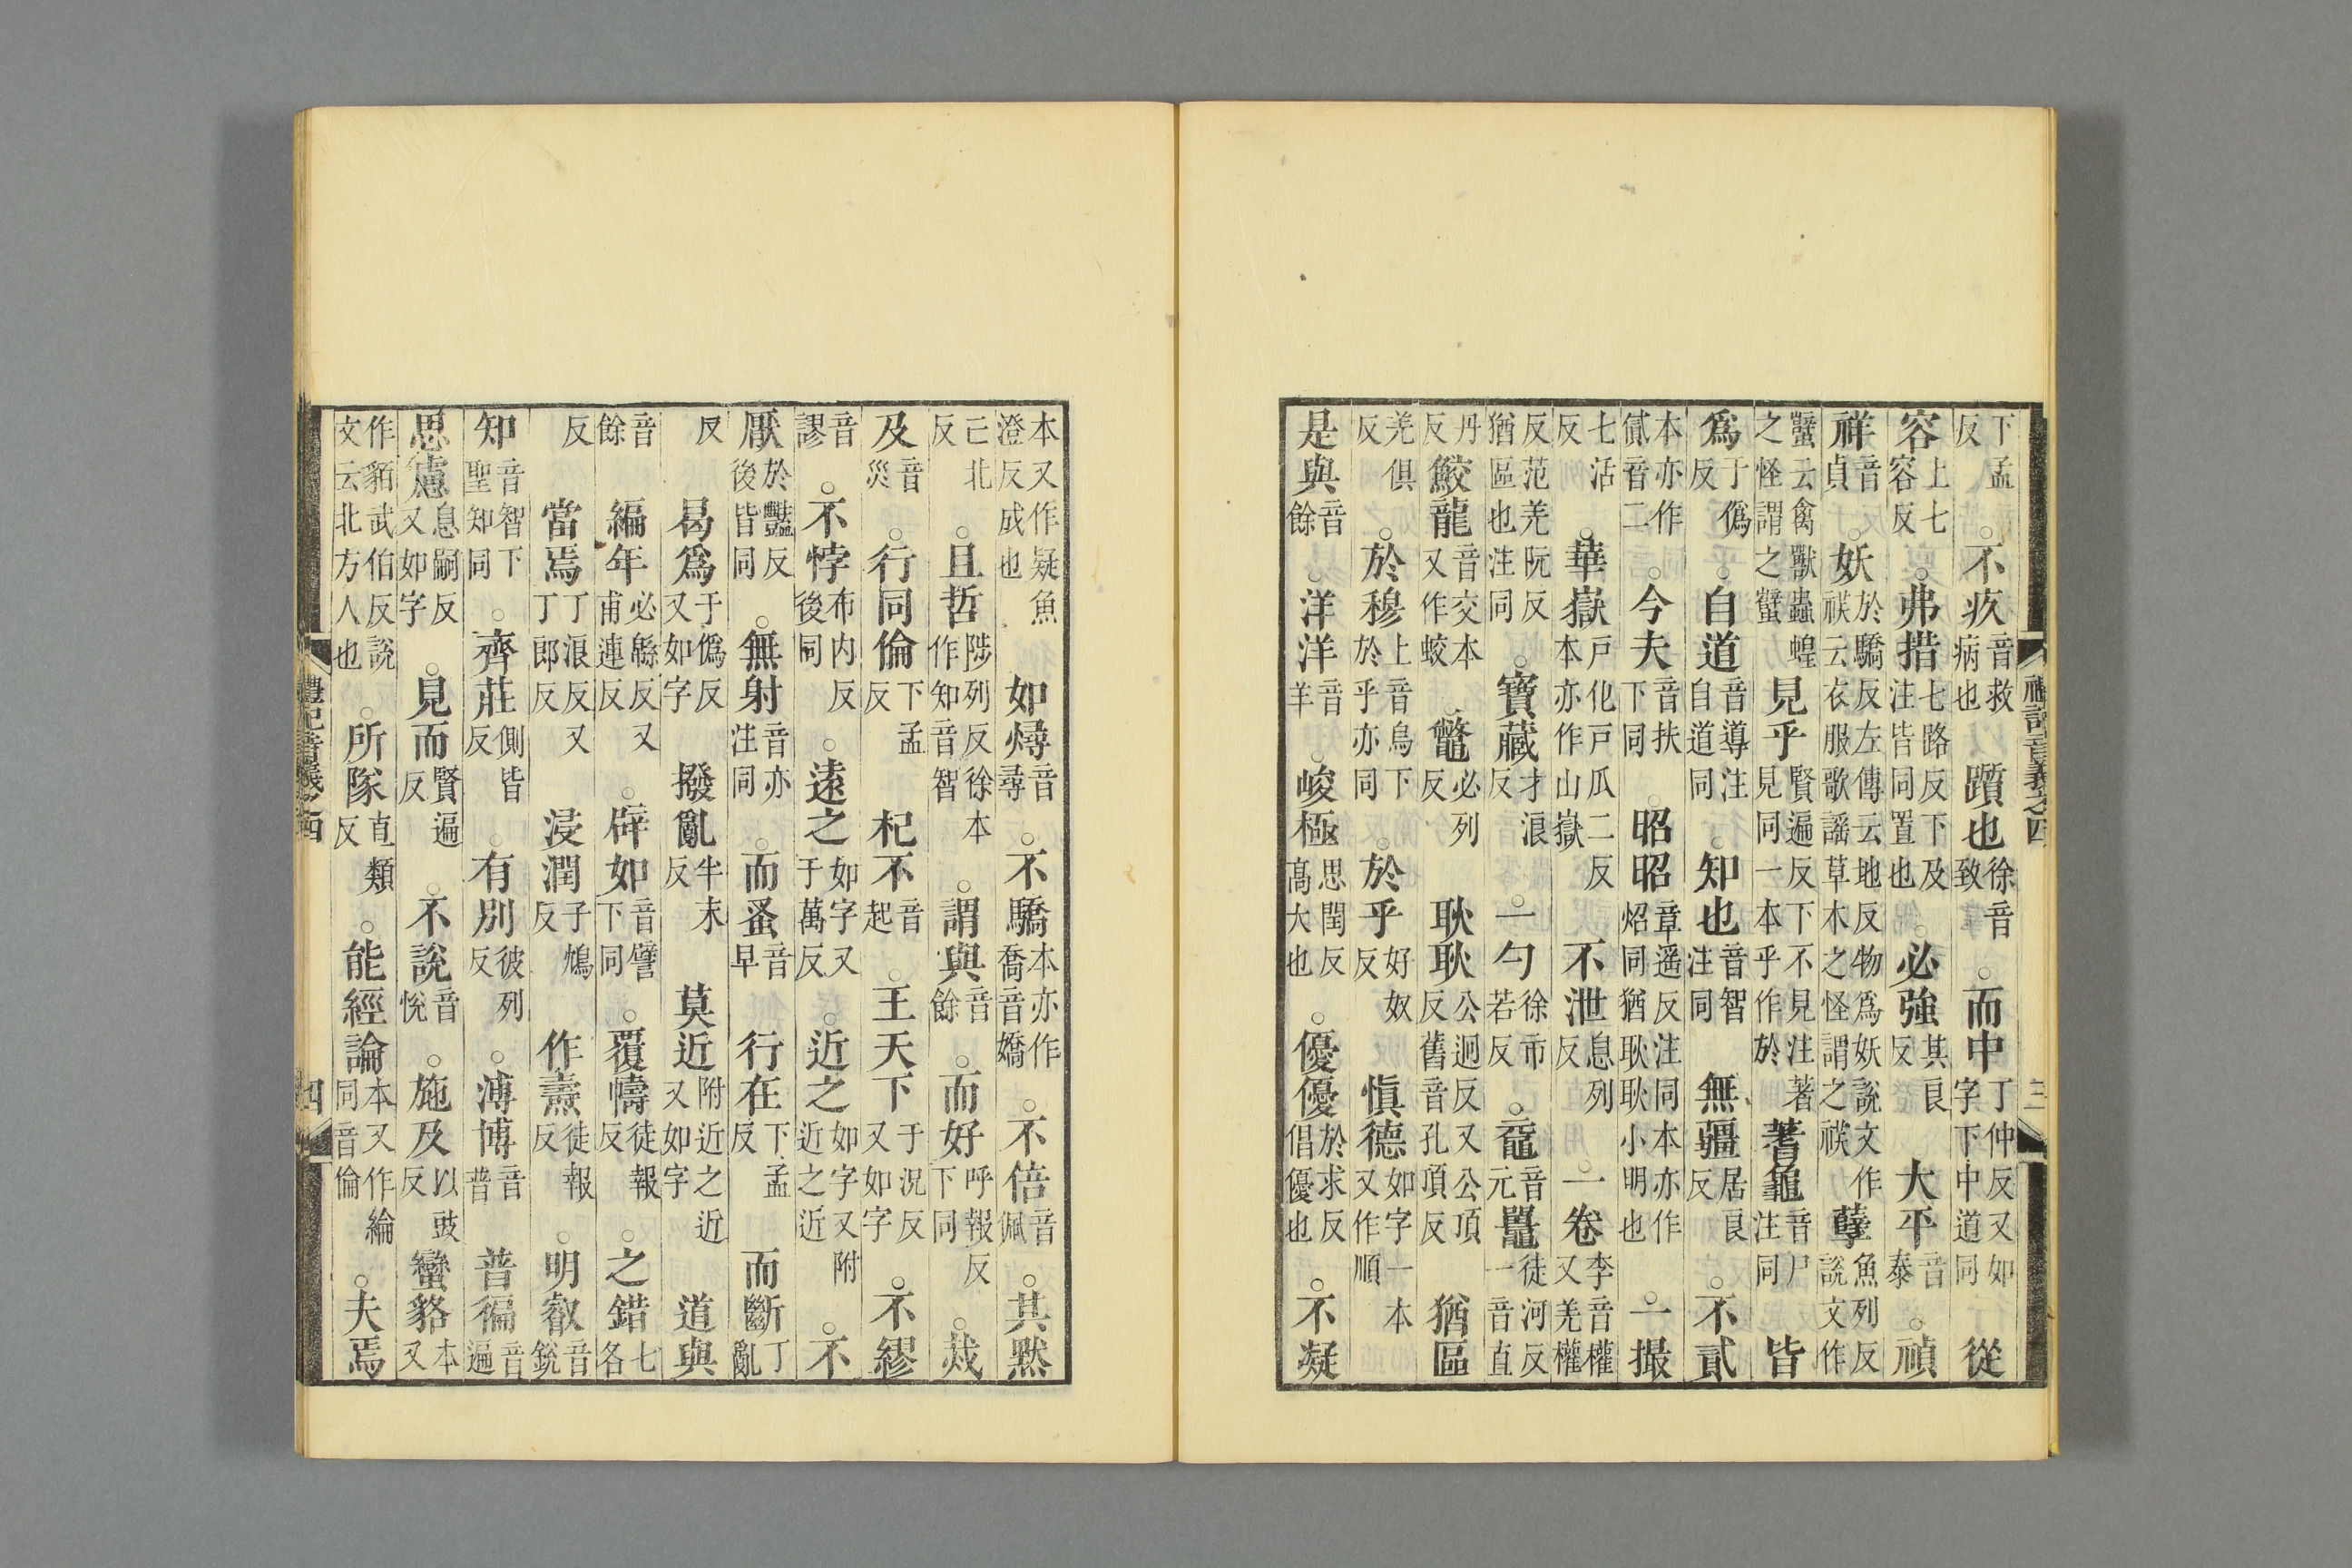 下孟反○不疚音救病也躓也徐音致○而中丁仲反又如字下中道同從
容上七容反○弗措七路反下及注皆同置也○必強其良反大平音泰○禎
祥音貞○妖於驕反左傳云地反物爲妖說文作祅云衣服歌謡草木之怪謂之祅孽魚列反說文作
蠥云禽獸蟲蝗之怪謂之蠥見乎賢遍反下不見注著見同一本乎作於蓍龜音尸注同皆
爲于僞反○自道音導注自道同○知也音智注同無疆居良反○不貳
本亦作貣音二○今夫音扶下同昭昭章遥反注同本亦作炤同猶耿耿小明也○一撮
七活反○華嶽戶化戶瓜二反本亦作山嶽不泄息列反○一卷李音權又羌權
反范羌阮反猶區也注同○寶藏才浪反○一勺徐市若反○黿音元鼉徒河反一音直
丹反鮫龍音交本又作蛟○鼈必列反耿耿公迥反又公頂反舊音孔頂反猶區
羌俱反○於穆上音烏下於乎亦同○於乎好奴反慎德如字一本又作順
是與音餘○洋洋音羊○峻極思閏反高大也○優優於求反倡優也○不凝
禮記音義之四 三
本又作疑魚澄反成也如燖音尋○不驕本亦作喬音嬌○不倍音佩○其黙
亡北反○且哲陟列反徐本作知音智○謂與音餘○而好呼報反下同○烖
及音災○行同倫下孟反杞不音起○王天下于況反又如字○不繆
音謬○不悖布内反後同○遠之如字又于萬反○近之如字又附近之近○不
厭於豔反後皆同○無射音亦注同○而蚤音早行在下孟反而斷丁亂
反曷爲于僞反又如字撥亂半末反莫近附近之近又如字道與
音餘編年必緜反又甫連反○辟如音譬下同○覆幬徒報反○之錯七各
反當焉丁浪反又丁郎反浸潤子鴆反作燾徒報反○明叡音銳
知音智下聖知同○齊莊側皆反○有別彼列反○溥博音普普徧音遍
思慮息嗣反又如字○見而賢遍反○不說音悅○施及以豉反蠻貉本又
作貊武伯反說文云北方人也○所隊直類反○能經論本又作綸同音倫○夫焉
禮記音義之四 四